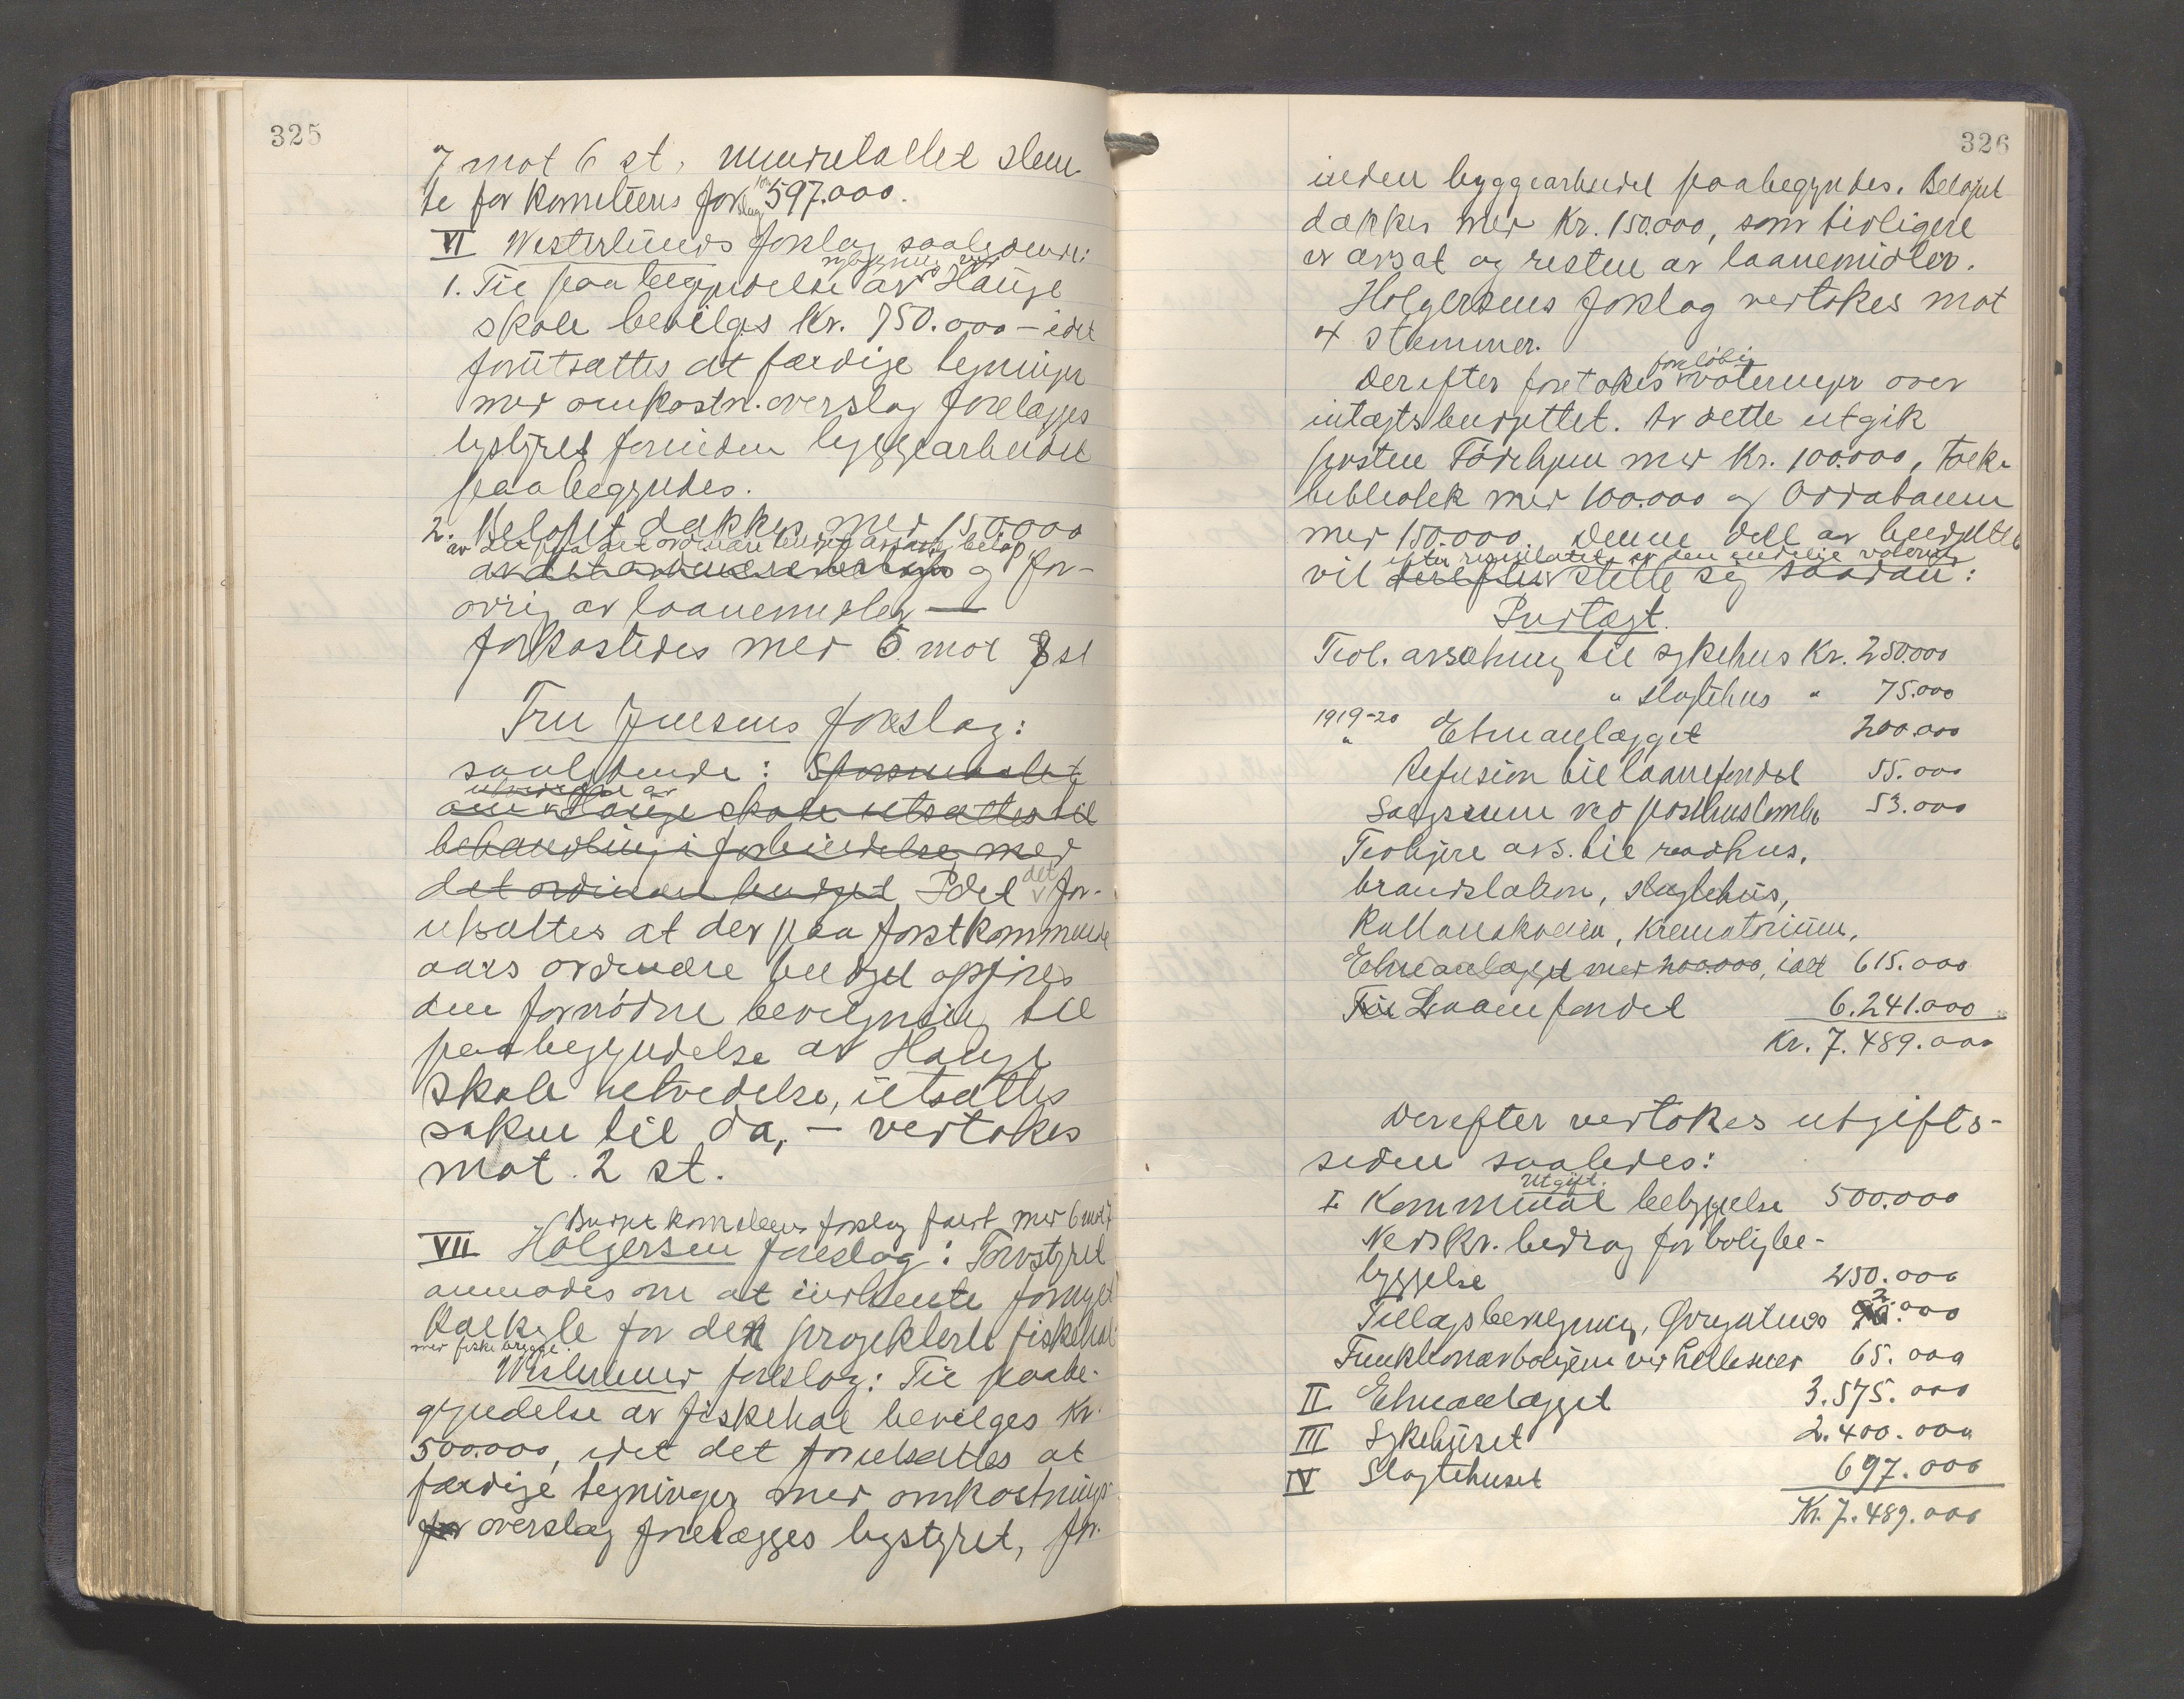 325
7 mot 6 st, mindretallet stem-
te for komiteens forslag kr 597.000.
VI Westerlunds forslag saalydende:
nybygning ved
1. Til paabegyndelse av Hauge
skole bevilges kr. 750.000 – idet
forutsættes at færdige tegninger
med omkostn. overslag forelægges
bystyret forinden byggearbeidet
paabegyndes.
2. Beløpet dækkes med 150.000
av det paa det ordinære budget avsatte beløp
og for-
øvrig av laanemidler —
forkastedes med 5 mot 8 st
Fru Jensens forslag:
saalydende: Spørsmaalet
utvidelse av
om Hauge skole utsættes til
behandling i forbindelse med
det ordinære budget Idet det for-
utsættes at der paa førstkommende
aars ordinære budget opføres
den fornødne bevilgning til
paabegyndelse av Hauge
skole utvidelse, utsættes
saken til da, – vedtokes
mot 2 st.
Budget komiteens forslag faldt med 6 mot 7
VII Holgersen foreslog: Torvstyret
anmodes om at indhente fornyet
kalkyle for den projekterte fiskehal
med fiskebrygge.
Westerlund foreslog: Til paabe-
gyndelse av fiskehal bevilges kr.
500.000, idet det forutsættes at
færdige tegninger med omkostnings-
for overslag forelægges bystyret, for-
326
inden byggearbeidet paabegyndes. Beløpet
dækkes med Kr. 150.000, som tidligere
er avsat og resten av laanemidler.
Holgersens forslag vedtokes mot
4 stemmer.
forløbig
Derefter foretokes voteringer over
indtægtsbudgettet. Av dette utgik
posten Fødehjem med Kr. 100.000, Folke-
bibliotek med 100.000 og Oddabanen
med 150.000. Denne dell av budgettet
efter resultatet av den endelige votering
vil derefter stelle sig saadan:
Indtægt.
Tidl. avsætning til sykehus Kr. 250.000
" slagtehus " 75.000
1919-20
" Elveanlægget 200.000
Refusion til laanefondet 55.000
Salgssum ved posthustomten 53.000
Tidligere avs. til raadhus,
brandstation, slagtehus,
krematorium,
Elveanlægget med 200.000, ialt 615.000
Til Laanefondet 6.241.000
Kr. 7.489.000
Derefter vedtokes utgifts-
siden saaledes:
Utgift.
I Kommunal bebyggelse 500.000
Nedskr. bidrag for boligbe-
byggelse 250.000
Tillægsbevilgning, 2.000
Funktionærboligene ved 65.000
II Elveanlægget 3.575.000
III Sykehuset 2.400.000
IV Slagtehuset 697.000
Kr. 7.489.000